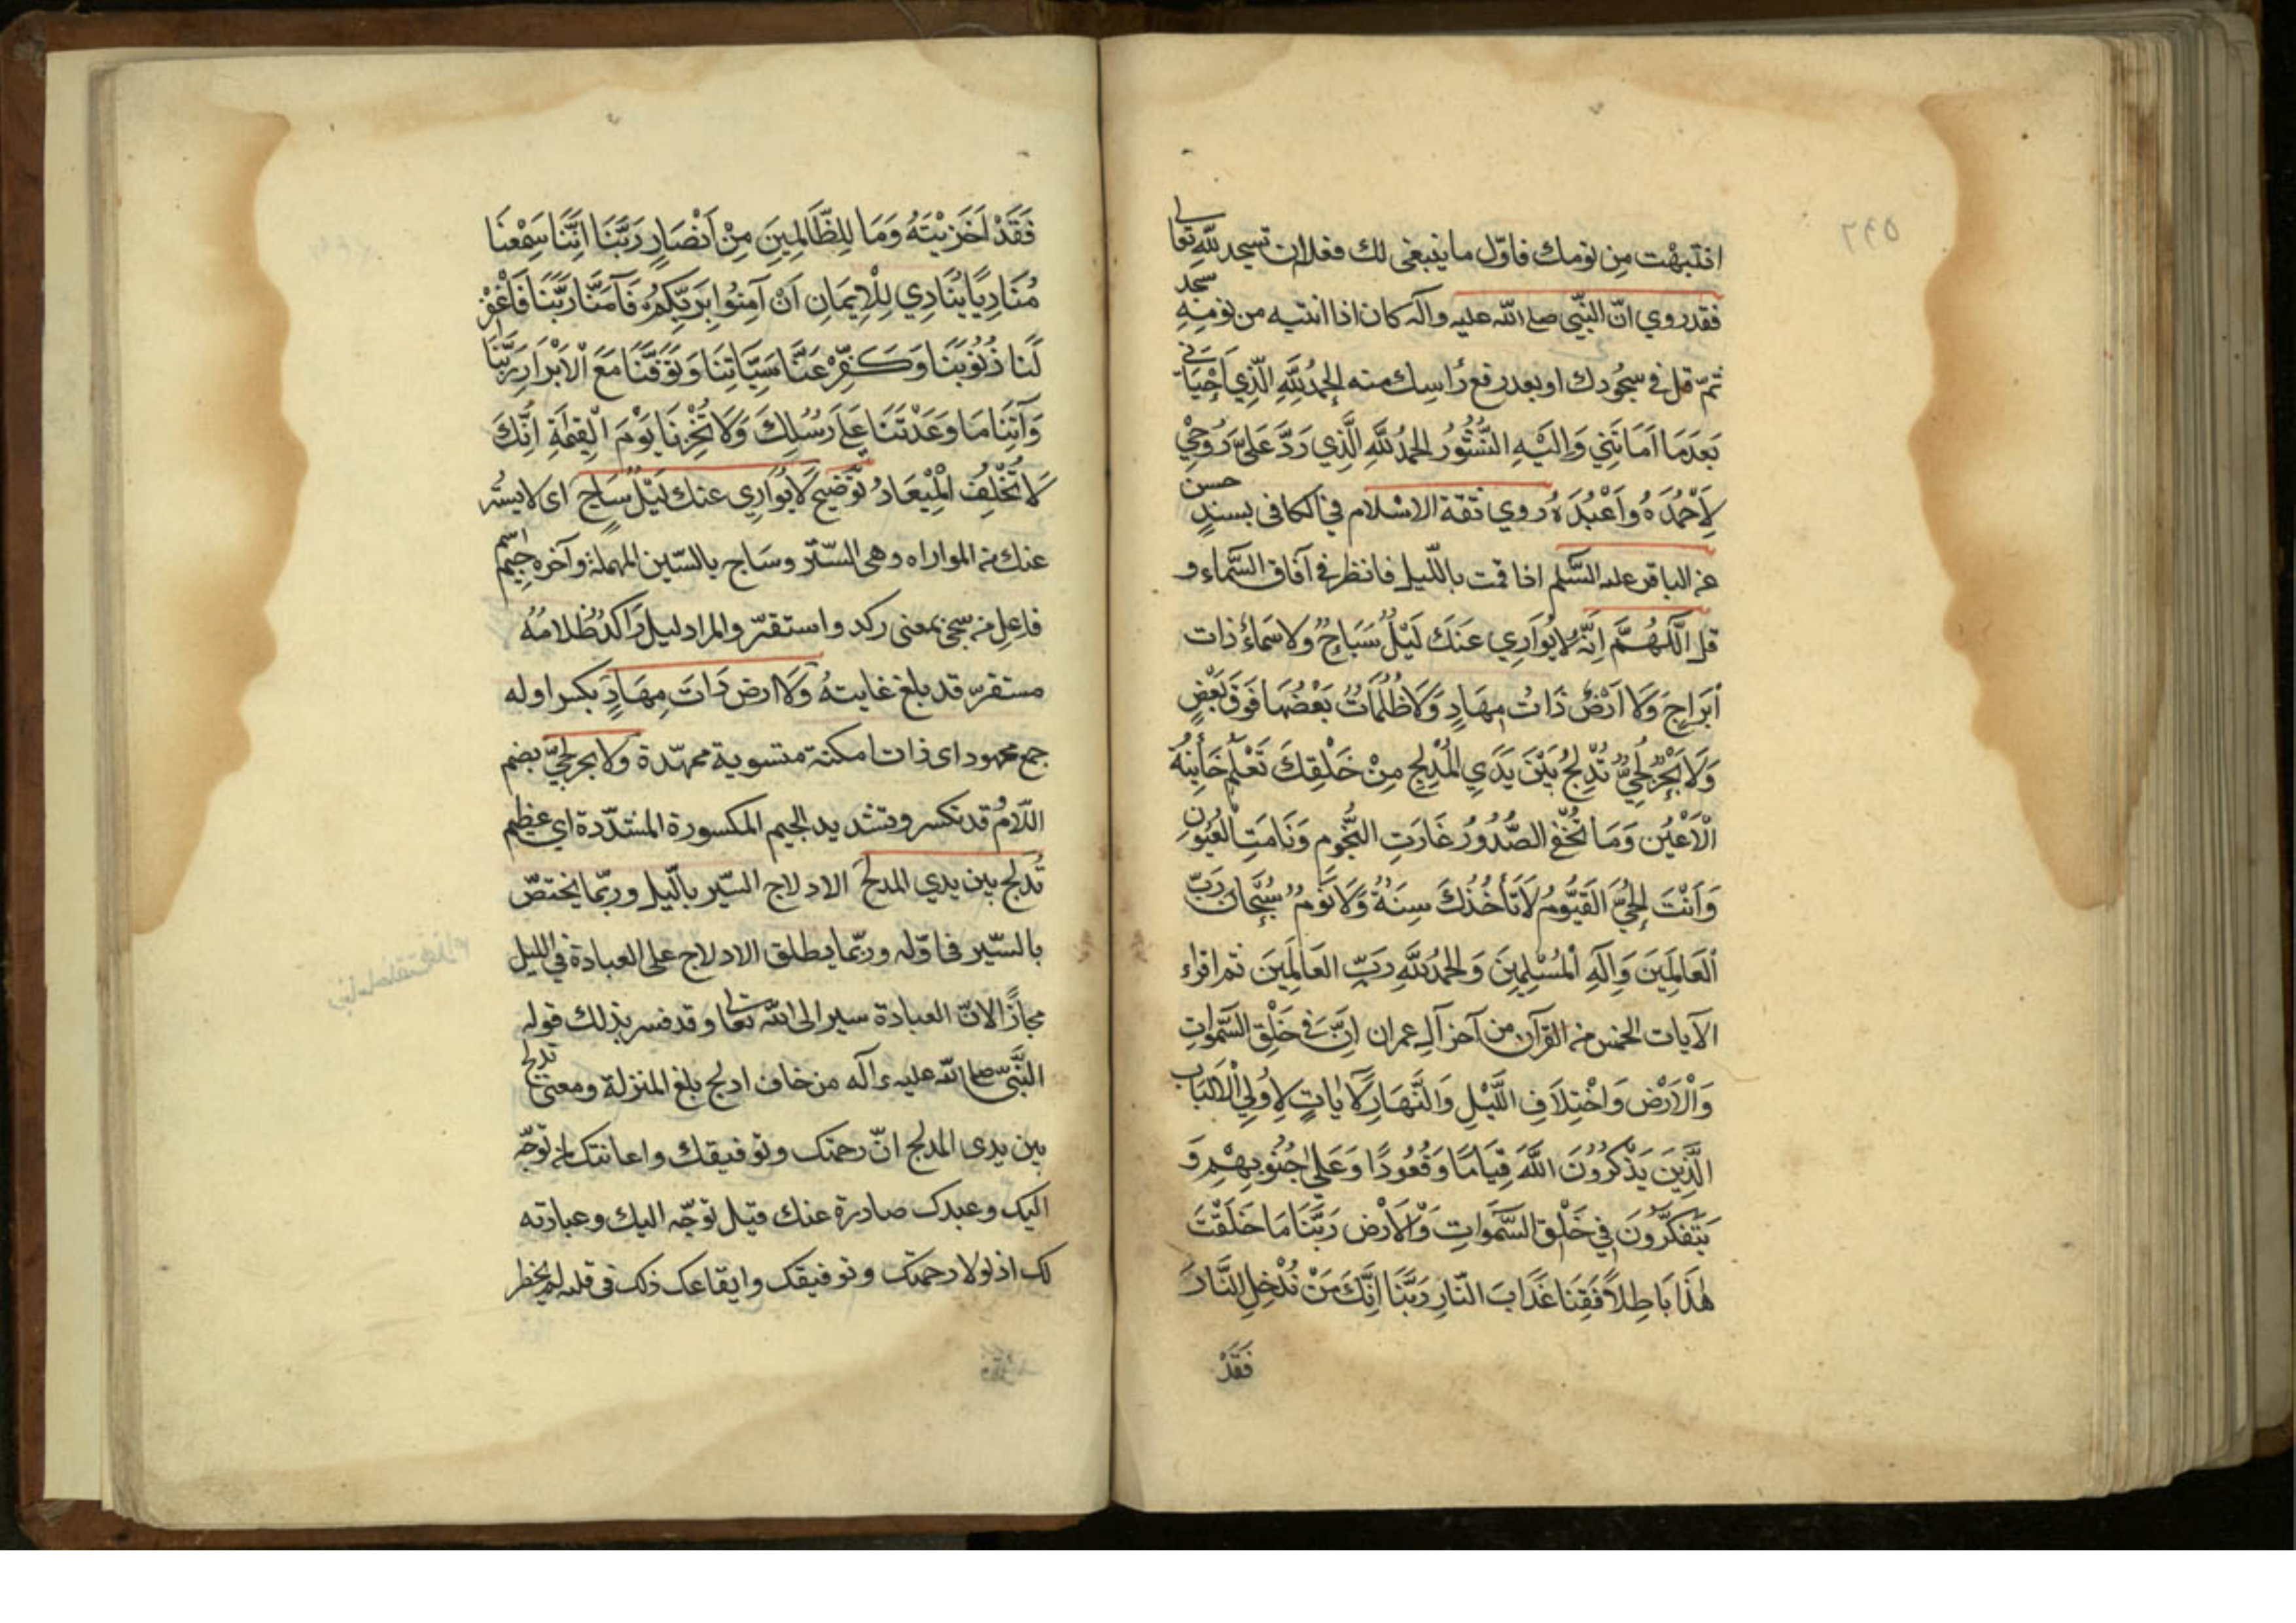 انتبهت مِن نومك فاوّل ما ينبغى لك فعله ان تسجد لله تعالى
فقد روي انّ النّبيّ صلى الله عليه وآله كان اذا انتبه من نومِهِ سجد
ثمّ قل في سجُودك او بعد رفع رأسِك منه الحمدُ لِلّهِ الَّذِي اَحْيَانِي
بَعدَمَا اَمَاتَنِي وَاِلَيْهِ النُّشُورُ الحمدُ للهِ الَّذِي رَدَّ عَلَيَّ رُوحِي
لِاَحْمَدَهُ وَاَعْبُدَهُ روي ثقة الاسْلام في الكافى بسندٍ حسن
عن الباقر عليه السَّلم اذا قمت باللّيل فانظر فى آفاق السَّماء و
قل اَللّهُمَّ اِنَّهُ لا يُوَارِي عَنكَ لَيْلٌ سَاجٌ ولا سَماءٌ ذات
اَبْرَاجٍ وَلا اَرْضٌ ذَاتُ مِهَادٍ وَلَا ظُلُمَاتٌ بَعْضُهَا فَوْقَ بَعْضٍ
وَلَا بَحْرٌ لُجِّيٌّ تُدْلِجُ بَيْنَ يَدَيِ المُدْلِجِ مِنْ خَلْقِكَ تَعْلَمُ خَائِنَةَ
الْاَعْيُنِ وَمَا تُخْفِي الصُّدُورُ غَارَتِ النُّجُومِ وَنَامَتِ الْعُيُونِ
وَاَنْتَ الْحَيُّ القَيُّومُ لَا تَأْخُذُكَ سِنَةٌ وَلَا نَوْمٌ سُبْحَانَ رَبِّ
الْعَالَمِينَ وَاِلٰهِ الْمُسْلِمِينَ وَالحَمْدُ للهِ رَبِّ العَالَمِينَ ثم اقراء
الآيات الخمس من القرآن من آخر آل عمران اِنَّ فِي خَلْقِ السَّمٰوَاتِ
وَالْاَرْضِ وَاخْتِلَافِ اللَّيْلِ وَالنَّهَارِ لَآيَاتٍ لِاُولِي الْاَلْبَابِ
الَّذِينَ يَذْكُرُونَ اللّهَ قِيَامًا وَقُعُودًا وَعَلى جُنُوبِهِمْ وَ
يَتَفَكَّرُونَ فِي خَلْقِ السَّمٰوَاتِ وَالْاَرْضِ رَبَّنَا مَا خَلَقْتَ
هٰذَا بَاطِلاً فَقِنَا عَذَابَ النّارِ رَبَّنَا اِنَّكَ مَنْ تُدْخِلِ النَّارَ
فَقَدْ
فَقَدْ اَخْزَيْتَهُ وَمَا لِلظَّالِمِينَ مِنْ اَنْصَارٍ رَبَّنَا اِنَّنَا سَمِعْنَا
مُنَادِيًا يُنَادِي لِلْاِيمَانِ اَنْ آمِنُوا بِرَبِّكُمْ فَآمَنَّا رَبَّنَا فَاغْفِرْ
لَنَا ذُنُوبَنَا وَكَفِّرْ عَنَّا سَيِّئَاتِنَا وَتَوَفَّنَا مَعَ الْاَبْرَارِ رَبَّنَا
وَآتِنَا مَا وَعَدْتَنَا عَلَى رُسُلِكَ وَلَا تُخْزِنَا يَوْمَ الْقِيمَةِ اِنَّكَ
لَا تُخْلِفُ الْمِيْعَادَ تَوضيح لَا يُوَارِي عنك لَيْلٌ سَاجٍ اى لا يستُر
عنك من المواراه وهى السّتر وسَاج بالسّين المهملة وآخره جيم اسم
فاعِل من سجى بمعنى ركد واستقرّ والمراد ليل رَاكدٌ ظلامُهُ
مستقرّ قد بلغ غايتهُ وَلا ارض ذَاتَ مِهَادٍ بكسر اوله
جمع ممهود اى ذات امكنة متسوية ممهّدة ولا بحر لجيّ بضم
اللّامُ قد تكسر وتشديد الجيم المكسورة المشدّدة اي عظيم
تُدلج بين يدي المدلج الادلاج السّير باللّيل وربّما يختصّ
بالسّير فى اوّله وربّما يطلق الادلاج على العبادة في الليل
مجازًا لانّ العبادة سير الى الله تعالى وقد فسر بذلك قوله
النَّبيّ صلى الله عليه وآله من خاف ادلج بلغ المنزلة ومعنى تدلج
بين يدى المدلج انّ رحمتك وتوفيقك واعانتك لمن توجّه
اليك وعبدك صادرة عنك قبل توجّه اليك وعبادته
لك اذ لولا رحمتك وتوفيقك وايقاعك ذلك فى قلبه لم يخطر